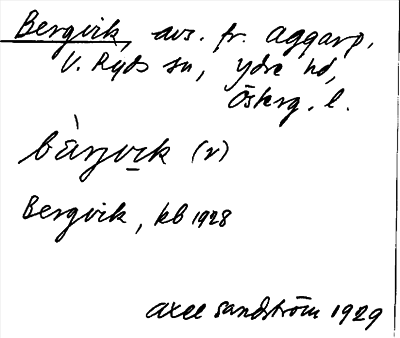 Bergvik, avs. fr. Aggarp,
V. Ryds sn, Ydre hd,
Österg. l.
bàrŋvek (v)
Bergvik, kb 1928
Axel Sandström 1929